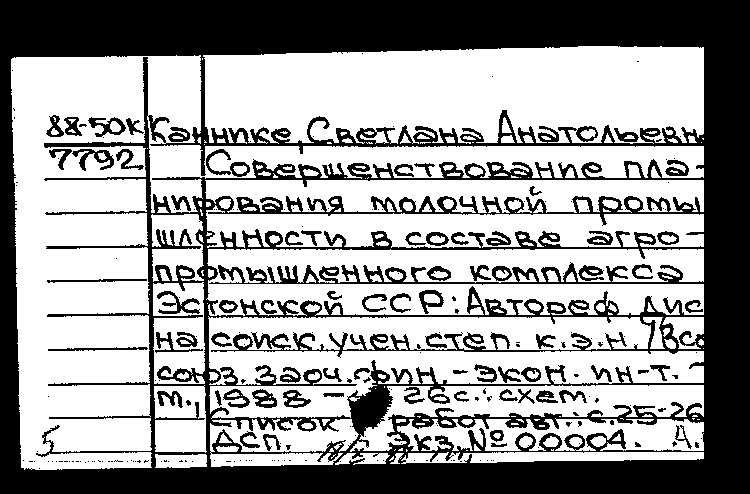 88-50к Каннике, Светлана Анатольевн
7792 Совершенствование пла-
нирования молочной промы
шленности в составе агро-
промышленного комплекса
Эстонской ССР: Автореф. дис
на соиск. учен. степ. к.э.н. /Вс
союз. заоч. фин.-экон. ин-т. -
т., 1988 - 26с.: схем.
Список работ авт.: с.25-26
Дсп. Экз. № 00004.
5